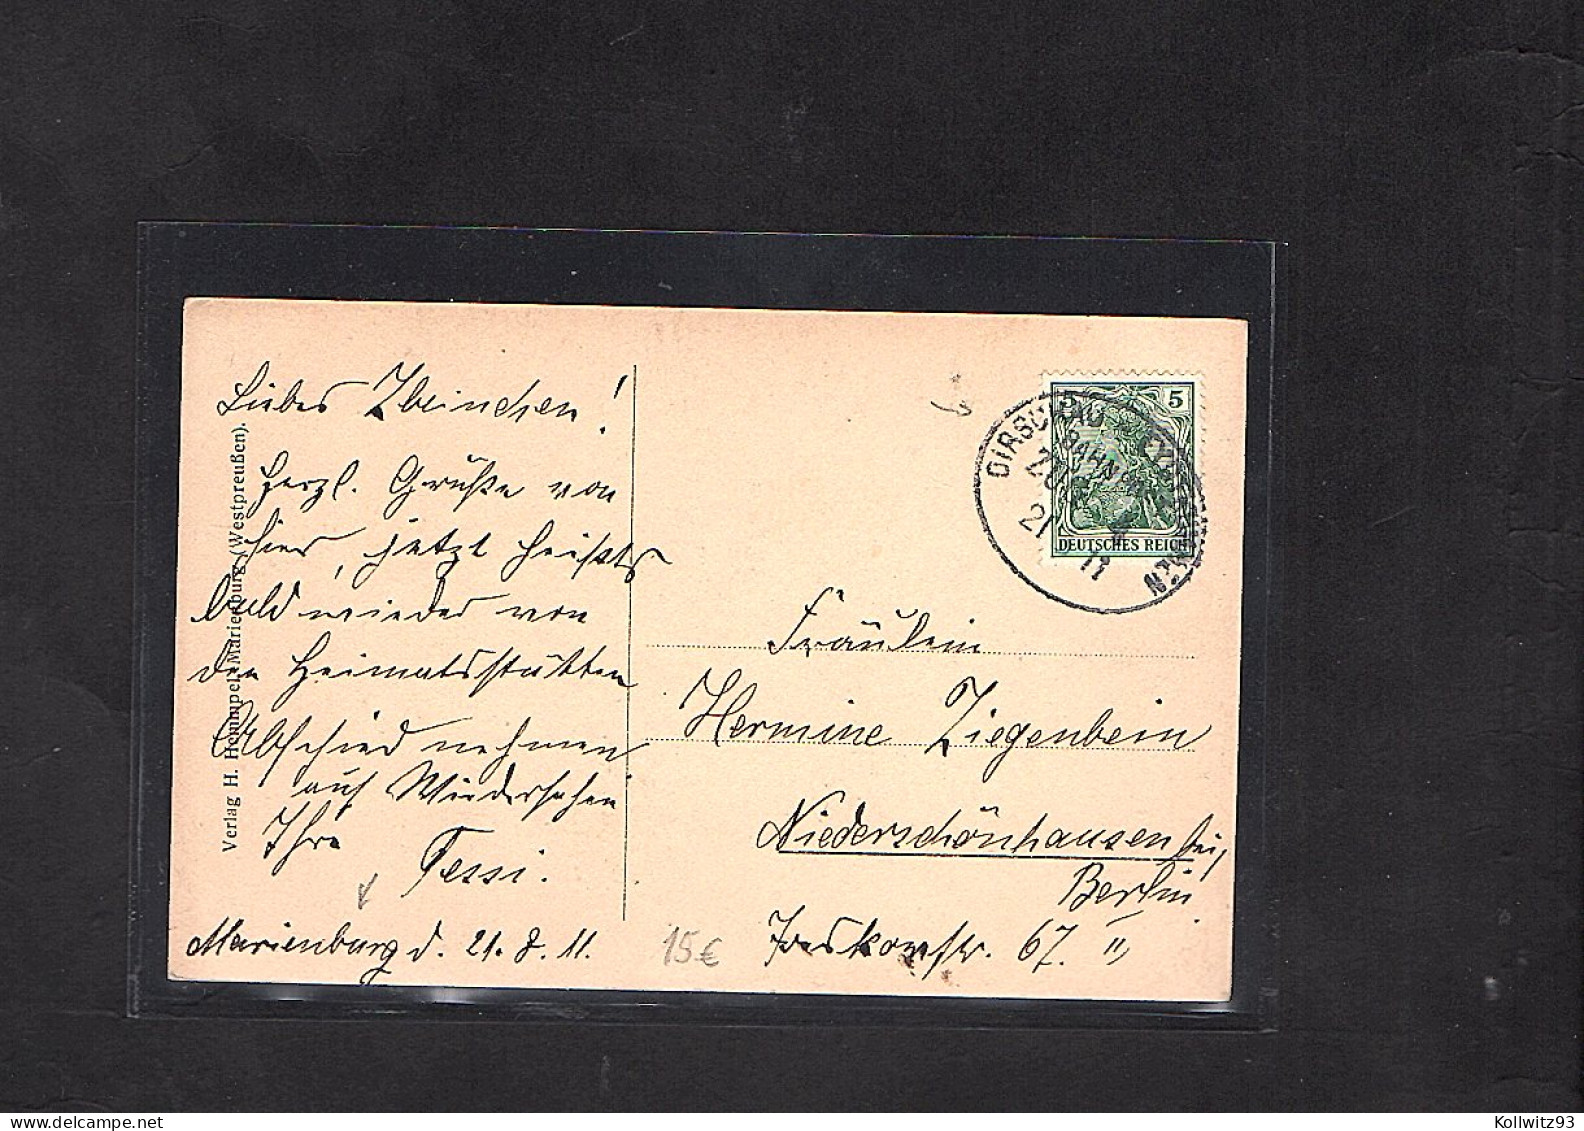 Liebes Zbeinchen!
Herzl. Grüße von
hier, jetzt heißts
bald wieder von
den Heimatsstätten
Abschied nehmen
auf Wiedersehen
Ihre
Fessi.
Marienburg d. 21. 8. 11.
Verlag H. Hempel, Marienburg (Westpreußen).
15€
5
DEUTSCHES REICH
DIRSCHAU
BAHNPOST
ZUG
21 11
Fräulein
Hermine Ziegenbein
Niederschönhausen bei
Berlin
67. II
Kollwitz93